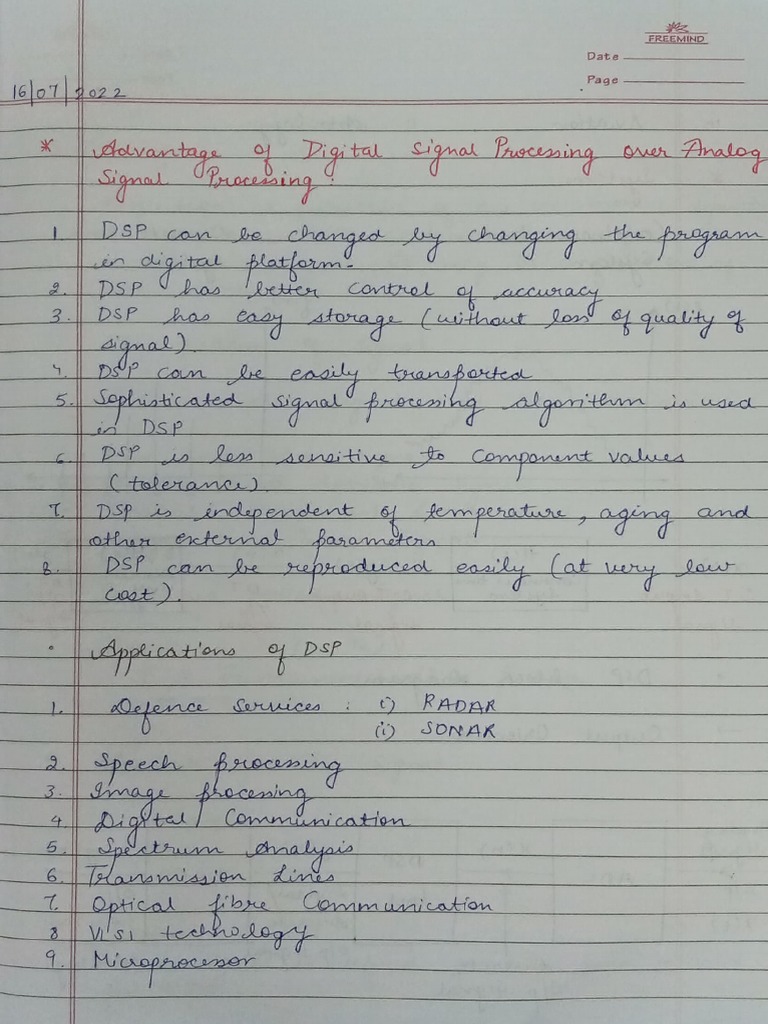 FREEMIND
Date
Page
16/07/2022
* Advantage of Digital Signal Processing over Analog
Signal Processing:
1 DSP can be changed by changing the program
in digital platform.
2. DSP has better control of accuracy
3. DSP has easy storage (without loss of quality of
signal).
4. DSP can be easily transported
5. Sophisticated signal processing algorithm is used
in DSP
6. DSP is less sensitive to component values
(tolerance).
7. DSP is independent of temperature, aging and
other external parameters
8. DSP can be reproduced easily (at very low
cost).
• Applications of DSP
1. Defence Services : i) RADAR
(i) SONAR
2. Speech processing
3. Image processing
4. Digital Communication
5. Spectrum Analysis
6. Transmission Lines
7. Optical fibre Communication
8 VLSI technology
9. Microprocessor